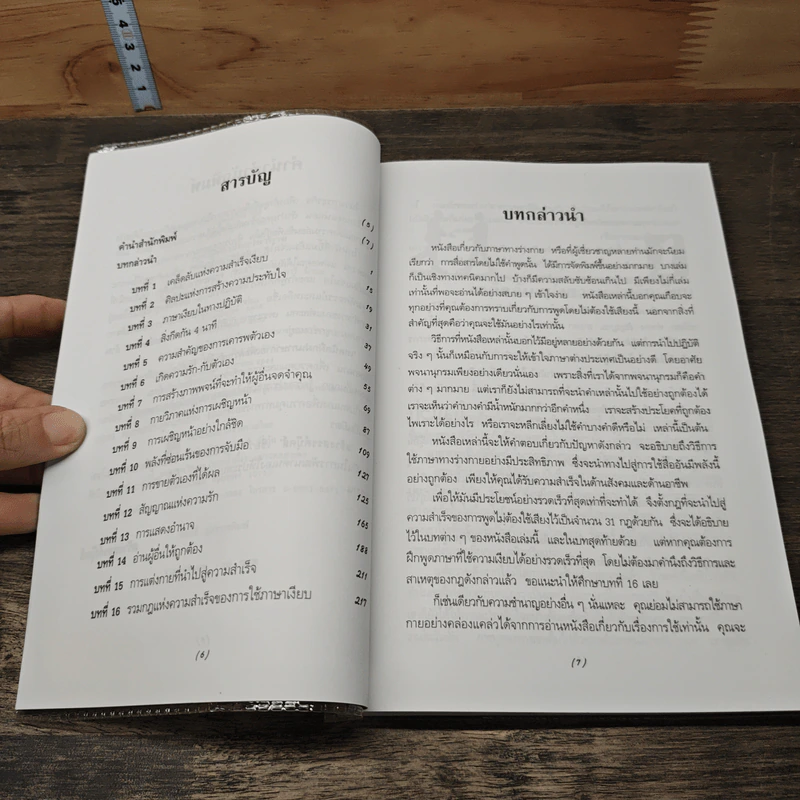 5
4
3
2
1
สารบัญ
คำนำสำนักพิมพ์ (5)
บทกล่าวนำ (7)
บทที่ 1 เคล็ดลับแห่งความสำเร็จเงียบ 1
บทที่ 2 ศิลปะแห่งการสร้างความประทับใจ
บทที่ 3 ภาษาเงียบในทางปฏิบัติ
บทที่ 4 สิ่งกีดกัน 4 นาที
บทที่ 5 ความสำคัญของการเคารพตัวเอง
บทที่ 6 เกิดความรัก-กับตัวเอง
บทที่ 7 การสร้างภาพพจน์ที่จะทำให้ผู้อื่นจดจำคุณ
บทที่ 8 กายวิภาคแห่งการเผชิญหน้า
บทที่ 9 การเผชิญหน้าอย่างใกล้ชิด
บทที่ 10 พลังที่ซ่อนเร้นของการจับมือ 105
บทที่ 11 การขายตัวเองที่ได้ผล 127
บทที่ 12 สัญญาณแห่งความรัก
บทที่ 13 การแสดงอำนาจ 165
บทที่ 14 อ่านผู้อื่นให้ถูกต้อง 188
บทที่ 15 การแต่งกายที่นำไปสู่ความสำเร็จ 211
บทที่ 16 รวมกฎแห่งความสำเร็จของการใช้ภาษาเงียบ 217
(6)
บทกล่าวนำ
หนังสือเกี่ยวกับภาษาทางร่างกาย หรือที่ผู้เชี่ยวชาญหลายท่านมักจะนิยม
เรียกว่า การสื่อสารโดยไม่ใช้คำพูดนั้น ได้มีการจัดพิมพ์ขึ้นอย่างมากมาย บางเล่ม
ก็เป็นเชิงทางเทคนิคมากไป บ้างก็มีความสลับซับซ้อนเกินไป มีเพียงไม่กี่เล่ม
เท่านั้นที่พอจะอ่านได้อย่างสบาย ๆ เข้าใจง่าย หนังสือเหล่านั้นบอกคุณเกือบจะ
ทุกอย่างที่คุณต้องการทราบเกี่ยวกับการพูดโดยไม่ต้องใช้เสียงนี้ นอกจากสิ่งที่
สำคัญที่สุดคือว่าคุณจะใช้มันอย่างไรเท่านั้น
วิธีการที่หนังสือเหล่านั้นบอกไว้มีอยู่หลายอย่างด้วยกัน แต่การนำไปปฏิบัติ
จริง ๆ นั้นก็เหมือนกับการจะให้เข้าใจภาษาต่างประเทศเป็นอย่างดี โดยอาศัย
พจนานุกรมเพียงอย่างเดียวนั่นเอง เพราะสิ่งที่เราได้จากพจนานุกรมก็คือคำ
ต่าง ๆ มากมาย แต่เราก็ยังไม่สามารถที่จะนำคำเหล่านั้นไปใช้อย่างถูกต้องได้
เราจะเห็นว่าคำบางคำมีน้ำหนักมากกว่าอีกคำหนึ่ง เราจะสร้างประโยคที่ถูกต้อง
ไพเราะได้อย่างไร หรือเราจะหลีกเลี่ยงไม่ใช้คำบางคำดีหรือไม่ เหล่านี้เป็นต้น
หนังสือเหล่านี้จะให้คำตอบเกี่ยวกับปัญหาดังกล่าว จะอธิบายถึงวิธีการ
ใช้ภาษาทางร่างกายอย่างมีประสิทธิภาพ ซึ่งจะนำทางไปสู่การใช้สื่ออันมีพลังนี้
อย่างถูกต้อง เพียงให้คุณได้รับความสำเร็จในด้านสังคมและด้านอาชีพ
เพื่อให้มันมีประโยชน์อย่างรวดเร็วที่สุดเท่าที่จะทำได้ จึงตั้งกฎที่จะนำไปสู่
ความสำเร็จของการพูดไม่ต้องใช้เสียงไว้เป็นจำนวน 31 กฎด้วยกัน ซึ่งจะได้อธิบาย
ไว้ในบทต่าง ๆ ของหนังสือเล่มนี้ และในบทสุดท้ายด้วย แต่หากคุณต้องการ
ฝึกพูดภาษาที่ใช้ความเงียบได้อย่างรวดเร็วที่สุด โดยไม่ต้องมาคำนึงถึงวิธีการและ
สาเหตุของกฎดังกล่าวแล้ว ขอแนะนำให้ศึกษาบทที่ 16 เลย
ก็เช่นเดียวกับความชำนาญอย่างอื่น ๆ นั่นแหละ คุณย่อมไม่สามารถใช้ภาษา
กายอย่างคล่องแคล่วได้จากการอ่านหนังสือเกี่ยวกับเรื่องการใช้เท่านั้น คุณจะ
(7)